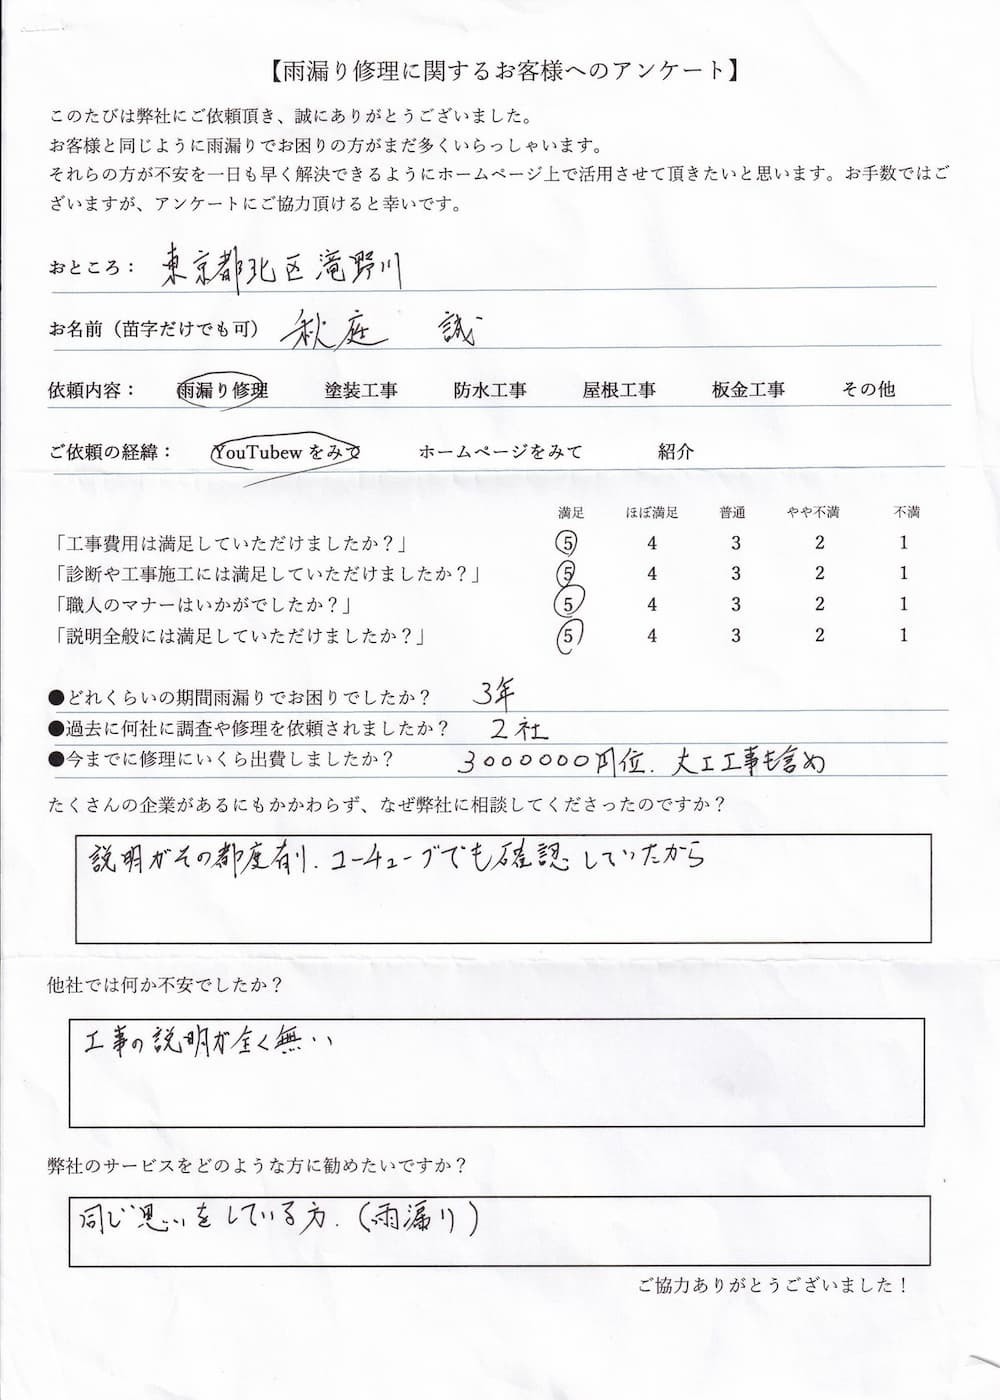 【雨漏り修理に関するお客様へのアンケート】
このたびは弊社にご依頼頂き、誠にありがとうございました。
お客様と同じように雨漏りでお困りの方がまだ多くいらっしゃいます。
それらの方が不安を一日も早く解決できるようにホームページ上で活用させて頂きたいと思います。お手数ではご
ざいますが、アンケートにご協力頂けると幸いです。
おところ： 東京都北区滝野川
お名前（苗字だけでも可） 秋庭 誠
依頼内容： 雨漏り修理 塗装工事 防水工事 屋根工事 板金工事 その他
ご依頼の経緯： YouTubewをみて ホームページをみて 紹介
満足 ほぼ満足 普通 やや不満 不満
「工事費用は満足していただけましたか？」 5 4 3 2 1
「診断や工事施工には満足していただけましたか？」 5 4 3 2 1
「職人のマナーはいかがでしたか？」 5 4 3 2 1
「説明全般には満足していただけましたか？」 5 4 3 2 1
●どれくらいの期間雨漏りでお困りでしたか？ 3年
●過去に何社に調査や修理を依頼されましたか？ 2社
●今までに修理にいくら出費しましたか？ 3000000円位、大工工事も含め
たくさんの企業があるにもかかわらず、なぜ弊社に相談してくださったのですか？
説明がその都度有り、ユーチューブでも確認していたから
他社では何か不安でしたか？
工事の説明が全く無い
弊社のサービスをどのような方に勧めたいですか？
同じ思いをしている方、(雨漏り)
ご協力ありがとうございました！